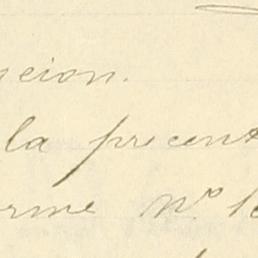 ncion.
la present
orme Nº 16